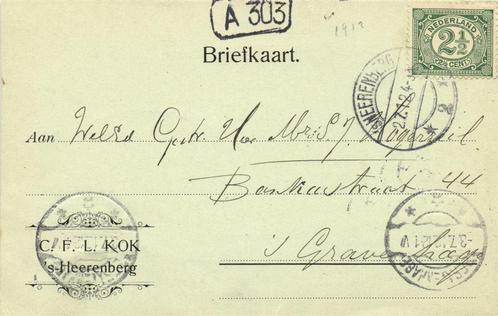 A 303
1912
Briefkaart.
NEDERLAND
2½
CENT
'S HEERENBERG
2.7.12.4-
2
Aan WelEd Gestr. Heer Mr S J Hogerzeil
Bankastraat 44
's Gravenhage
C. F. L. KOK
's-Heerenberg